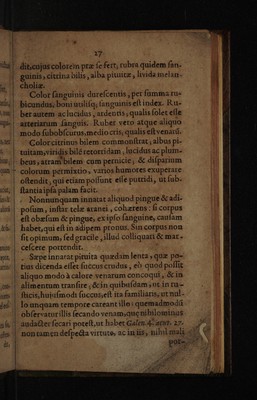 27
dit, cujus colorem præ se fert, rubra quidem san-
guinis, citrina bilis, alba pituitæ, livida melan-
choliæ.
Color sanguinis durescentis, per summa ru-
bicundus, boni utilisq; sanguinis est index. Ru-
ber autem ac lucidus, ardentis, qualis solet esse
arteriarum sanguis. Ruber vero atque aliquo
modo subobscurus, mediocris, qualis est venarū.
Color citrinus bilem commonstrat, albus pi-
tuitam, viridis bilē retorridam, lucidus ac plum-
beus, atram bilem cum pernicie, & disparium
colorum permixtio, varios humores exuperare
ostendit, qui etiam possunt esse putridi, ut sub-
stantia ipsa palam facit.
Nonnunquam innatat aliquod pingue & adi-
posum, instar telæ araneæ, cohærens: si corpus
est obæsum & pingue, ex ipso sanguine, causam
habet, qui est in adipem pronus. Sin corpus non
sit opimum, sed gracile, illud colliquati & mar-
cescere portendit.
Sæpe innatat pituita quædam lenta, quæ po-
tius dicenda esset succus crudus, eò quod possit
aliquo modo à calore venarum concoqui, & in
alimentum transire, & in quibusdam, ut in ru-
sticis, hujusmodi succus, est ita familiaris, ut nul-
lo unquam tempore careant illo: quemadmodū
observator illis secando venam, quę nihilominus
audacter secari potest, ut habet Galen. 4. acut. 27.
non tamen despecta virtute, ac in iis, nihil mali
pot-